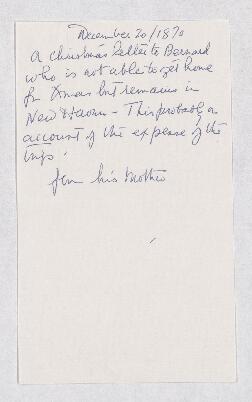 December 20/1870
A Christmas Letter to Bernard
who is not able to get home
for Xmas but remains in
New Haven - This probably on
account of the expense of the
trip.
from his mother